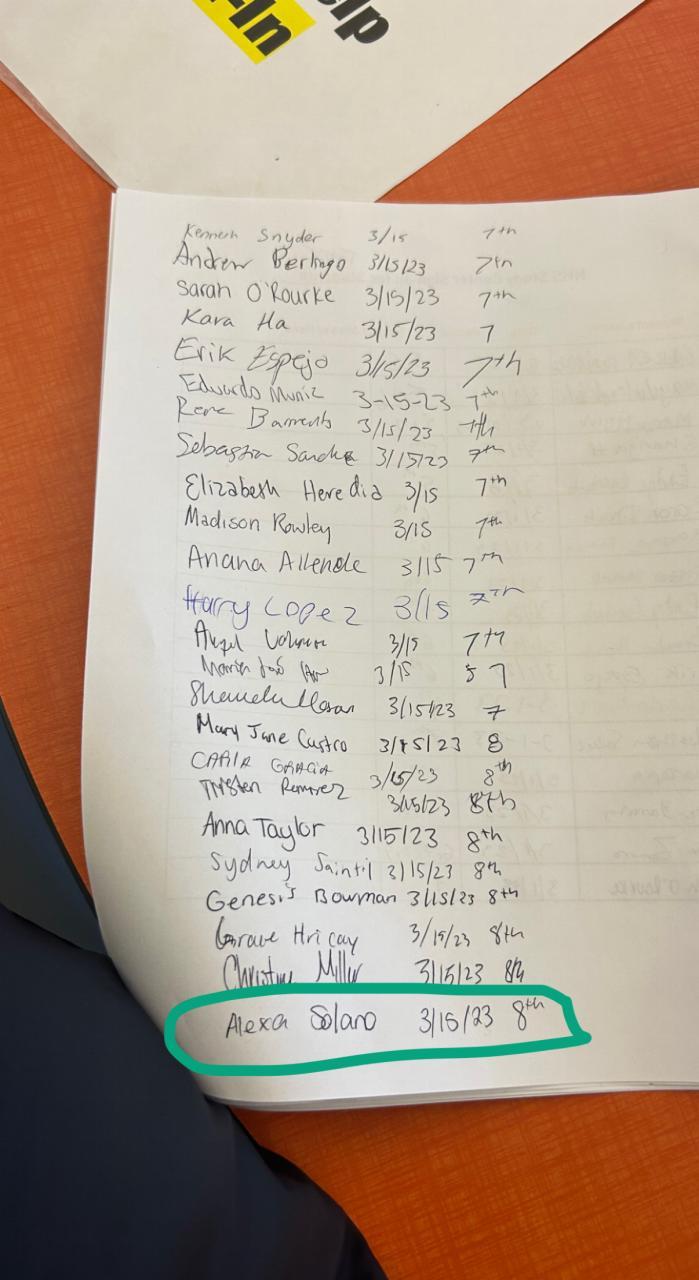 elp
-In
Kenneth Snyder 3/15 7th
Andrew Berlingo 3/15/23 7th
Sarah O'Rourke 3/15/23 7th
Kara Ha 3/15/23 7
Erik Espejo 3/15/23 7th
Eduardo Muniz 3-15-23 7th
Rene 3/15/23 7th
Sebastian 3/15/23 7th
Elizabeth Heredia 3/15 7th
Madison Rowley 3/15 7th
Anana Allende 3/15 7th
Harry Lopez 3/15 7th
Angel 3/15 7th
3/15 7
3/15/23 7
Mary Jane Castro 3/15/23 8
CARLA GARCIA 3/15/23 8th
Tristen Ramirez 3/15/23 8th
Anna Taylor 3/15/23 8th
Sydney Saintil 3/15/23 8th
Genesis Bowman 3/15/23 8th
Hricay 3/15/23 8th
Christine Miller 3/15/23 8th
Alexa Solano 3/15/23 8th